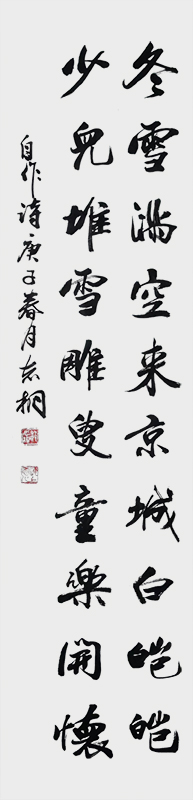 冬雪满空来京城白皑皑
少儿堆雪雕叟童樂開懷
自作诗庚子春月志桐